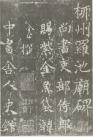 柳州羅池廟碑
尚書吏部侍郎
賜紫金魚袋
撰
中書舍人史館